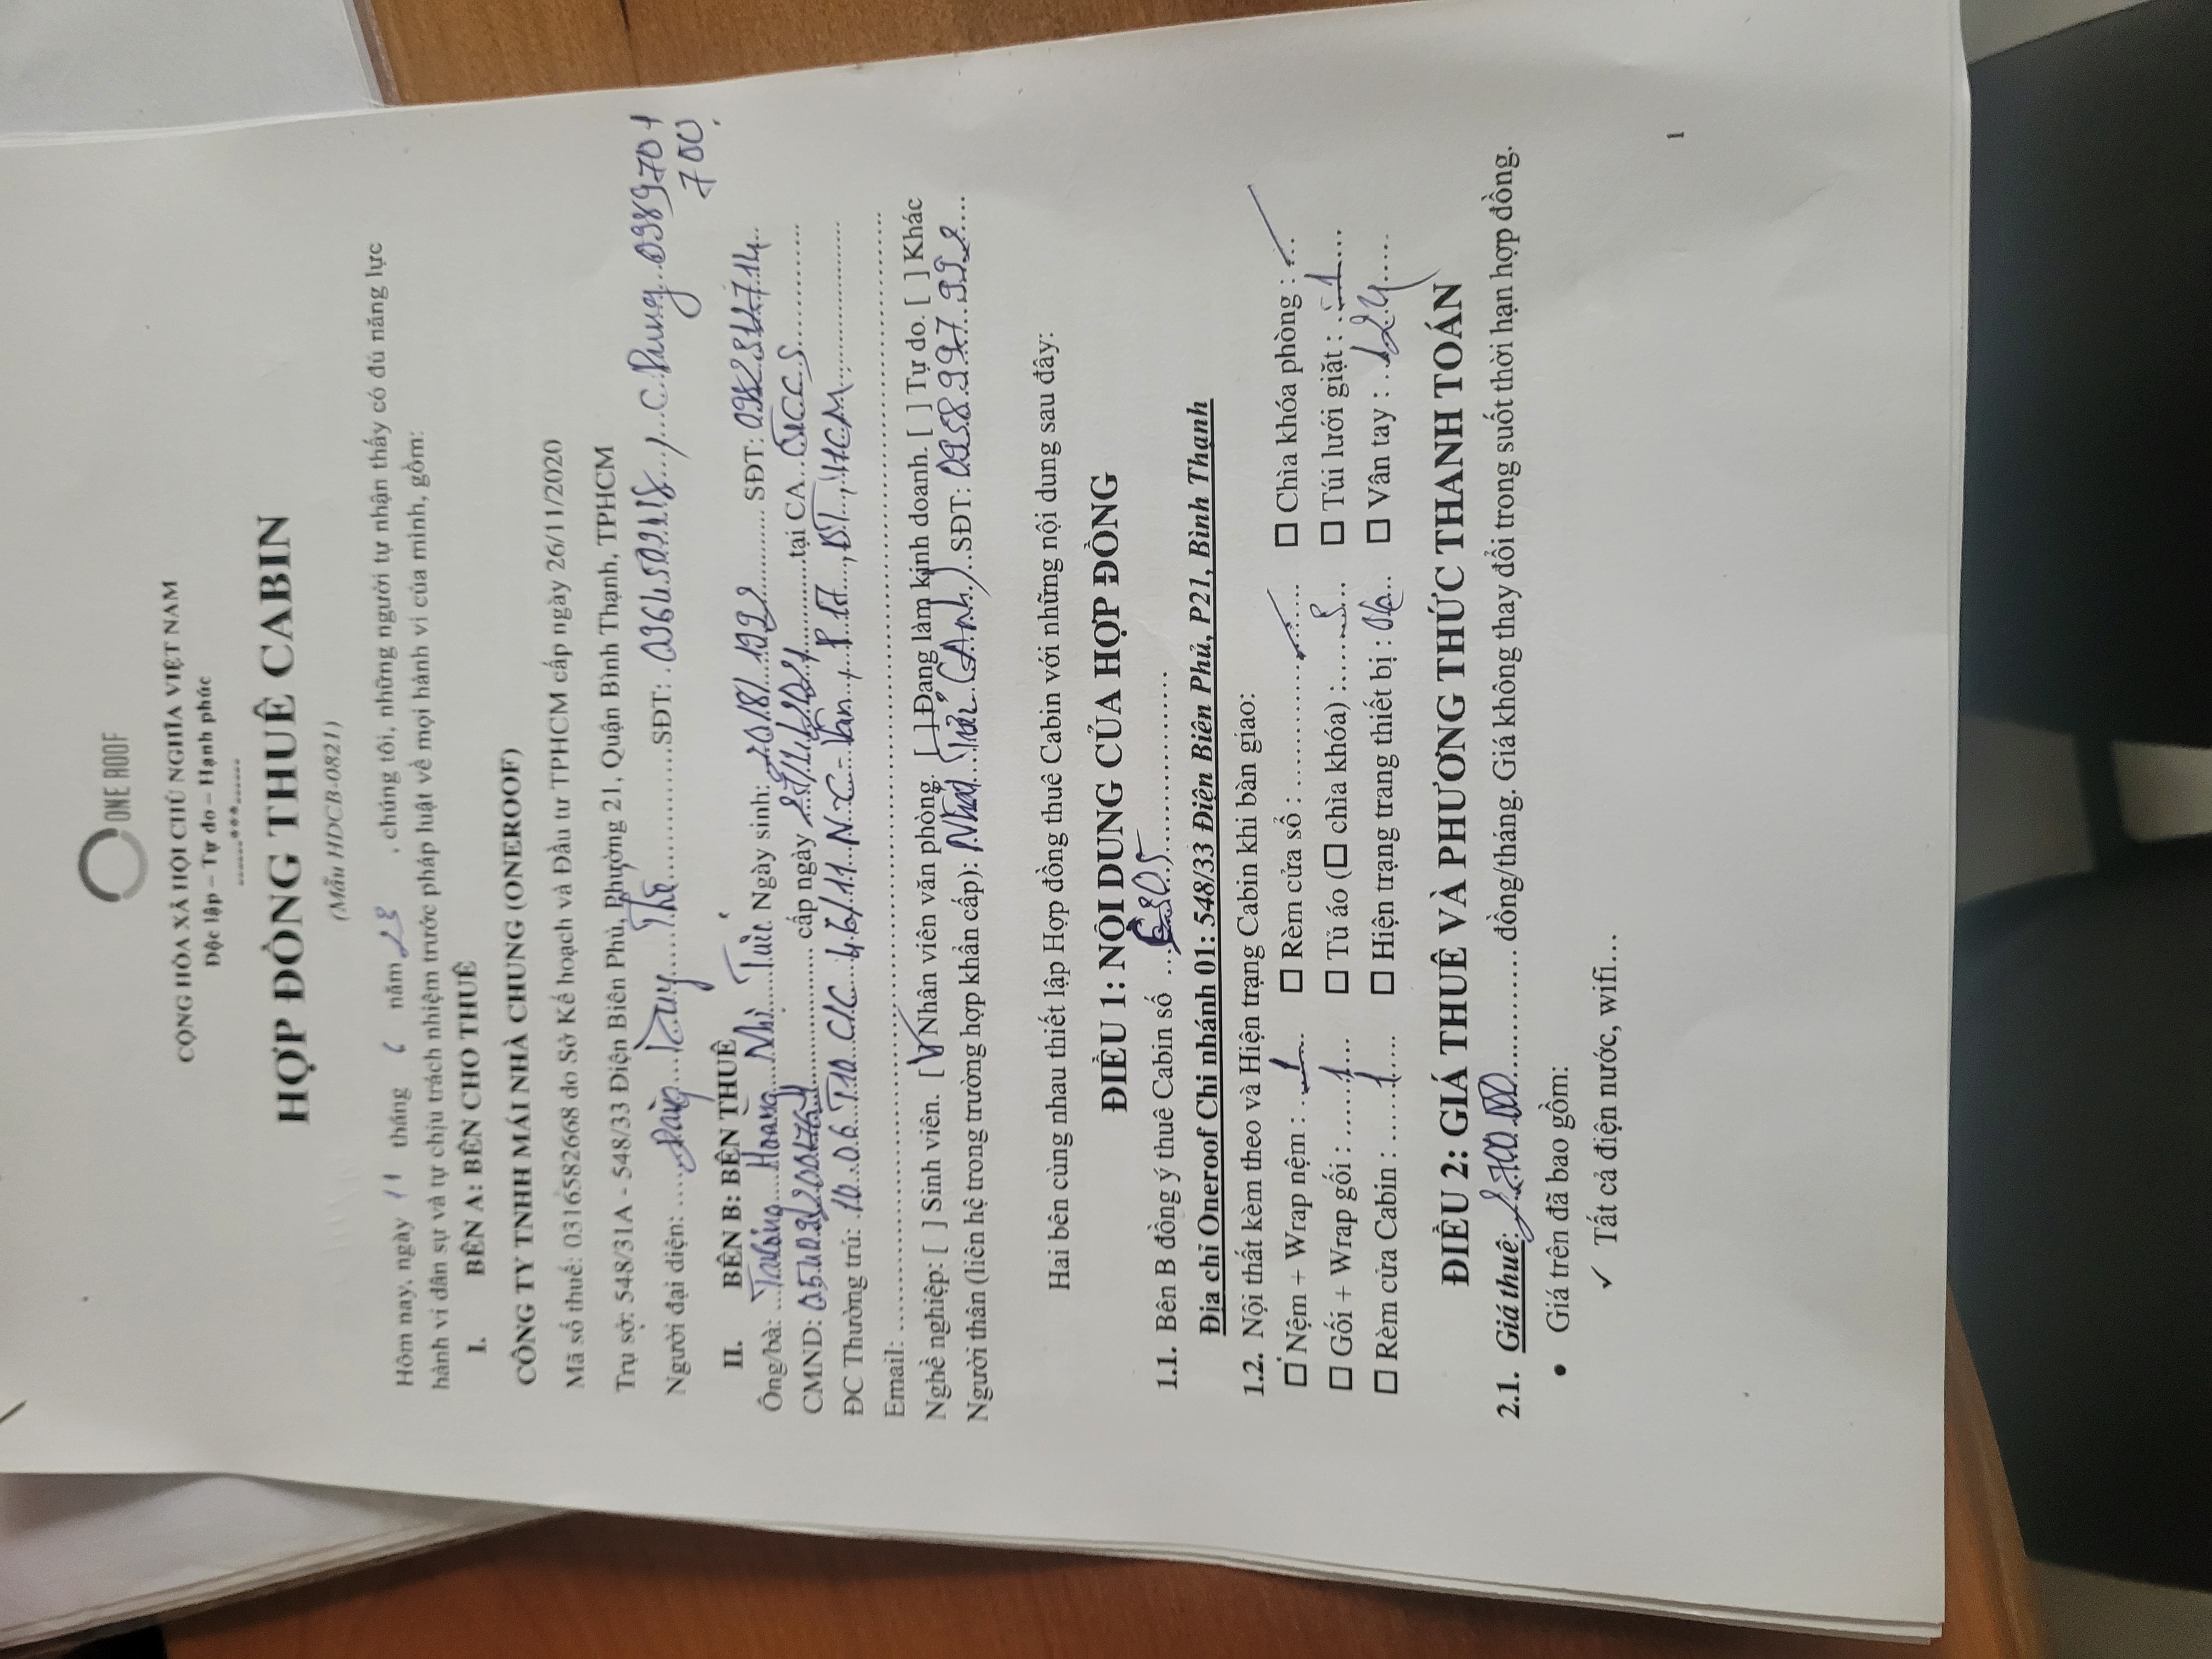 ONE ROOF
CỘNG HÒA XÃ HỘI CHỦ NGHĨA VIỆT NAM
Độc lập – Tự do – Hạnh phúc
------***------
HỢP ĐỒNG THUÊ CABIN
(Mẫu HĐCB-0821)
Hôm nay, ngày 11 tháng 6 năm 23 , chúng tôi, những người tự nhận thấy có đủ năng lực
hành vi dân sự và tự chịu trách nhiệm trước pháp luật về mọi hành vi của mình, gồm:
I. BÊN A: BÊN CHO THUÊ
CÔNG TY TNHH MÁI NHÀ CHUNG (ONEROOF)
Mã số thuế: 0316582668 do Sở Kế hoạch và Đầu tư TPHCM cấp ngày 26/11/2020
Trụ sở: 548/31A - 548/33 Điện Biên Phủ, Phường 21, Quận Bình Thạnh, TPHCM
Người đại diện: Duy Thế SĐT: C. 0389701
700
II. BÊN B: BÊN THUÊ
Ông/bà: Trương Hoàng Nhi Ngày sinh: SĐT:
CMND: cấp ngày tại CA
ĐC Thường trú: HCM
Email:
Nghề nghiệp: [ ] Sinh viên. [V] Nhân viên văn phòng. [ ] Đang làm kinh doanh. [ ] Tự do. [ ] Khác
Người thân (liên hệ trong trường hợp khẩn cấp): (Anh) SĐT:
Hai bên cùng nhau thiết lập Hợp đồng thuê Cabin với những nội dung sau đây:
ĐIỀU 1: NỘI DUNG CỦA HỢP ĐỒNG
1.1. Bên B đồng ý thuê Cabin số
Địa chỉ Oneroof Chi nhánh 01: 548/33 Điện Biên Phủ, P21, Bình Thạnh
1.2. Nội thất kèm theo và Hiện trạng Cabin khi bàn giao:
☐ Nệm + Wrap nệm : 1 ☐ Rèm cửa sổ : ✓ ☐ Chìa khóa phòng : ✓
☐ Gối + Wrap gối : 1 ☐ Tủ áo (☐ chìa khóa) : ☐ Túi lưới giặt : 1
☐ Rèm cửa Cabin : 1 ☐ Hiện trạng trang thiết bị : ok ☐ Vân tay : 124
ĐIỀU 2: GIÁ THUÊ VÀ PHƯƠNG THỨC THANH TOÁN
2.1. Giá thuê: 2.700.000 đồng/tháng. Giá không thay đổi trong suốt thời hạn hợp đồng.
• Giá trên đã bao gồm:
✓ Tất cả điện nước, wifi…
1